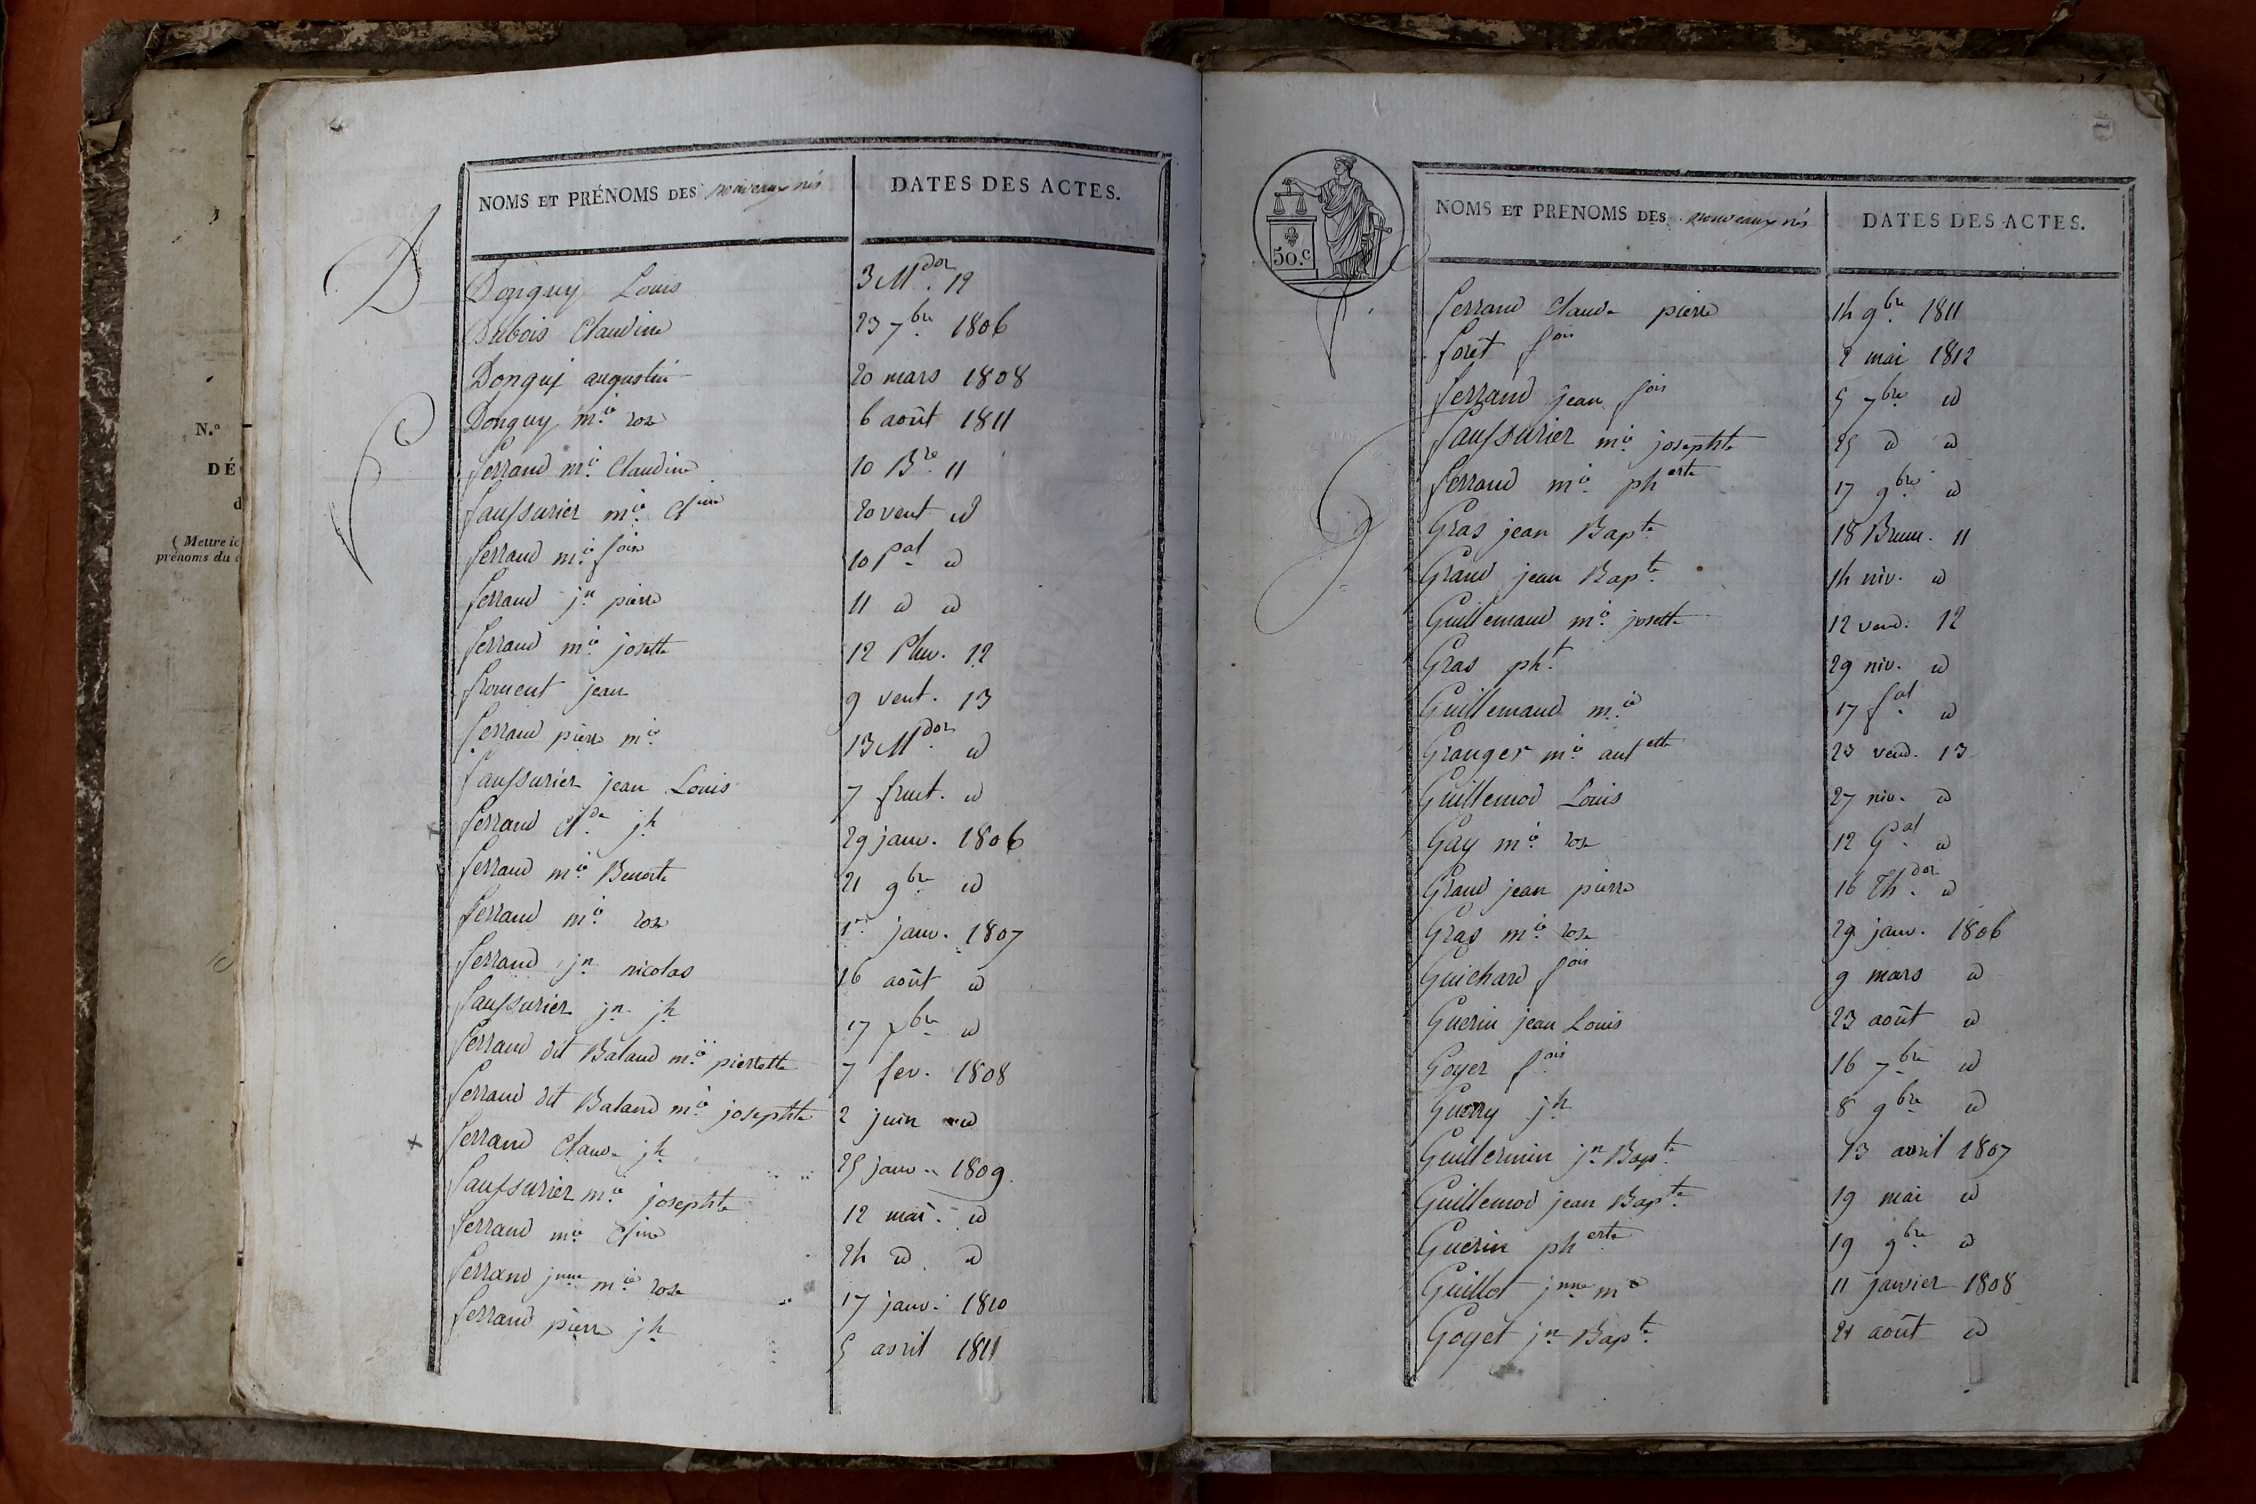 N.o
DÉ
d
( Mettre ic
prénoms du
D
NOMS ET PRÉNOMS DES nouveaux nés
DATES DES ACTES.
Donguy Louis 3 Mdor. 12
Dubois Claudine 23 7bre 1806
Donguy augustin 20 mars 1808
Donguy mie rose 6 août 1811
F
ferrand mie Claudine 10 Bre 11
faussurier mie Cfine 20 vent id
ferrand mie foise 10 Pal id
ferrand jn pierre 11 id id
ferrand mie josette 12 Pluv. 12
froment jean 9 vent. 13
ferrand pierre mie 13 Mdor id
faussurier jean Louis 7 fruct. id
ferrand Clde jh 29 janv. 1806
ferrand mie Benoite 21 9bre id
ferrand mie rose 1er janv. 1807
ferrand jn nicolas 16 août id
faussurier jn jh 17 bre id
ferrand dit Baland mie pierrette 7 fev. 1808
ferrand dit Baland mie josephte 2 juin id
ferrand Claude jh 25 janv. 1809
faussurier mie josephte 12 mai id
ferrand mie Cfine 24 id id
ferrand jnne mie rose 17 janv. 1810
ferrand pierre jh 5 avril 1811
50.c
NOMS ET PRENOMS DES nouveaux nés
DATES DES ACTES.
f
ferrand Claude pierre 14 9bre 1811
foret fois 2 mai 1812
ferrand jean fois 5 7bre id
faussurier mie josephte 25 id id
ferrand mie pherte 17 9bre id
G
Gras jean Bapte 18 Brum. 11
Grand jean Bapte 14 niv. id
Guillemaud mie josette 12 vend. 12
Gras pht 29 niv. id
Guillemaud mie 17 fal id
Granger mie antette 23 vend. 13
Guillemod Louis 27 niv. id
Gay mie rose 12 Gal id
Grand jean pierre 16 Thdor id
Gras mie rose 29 janv. 1806
Guichard fois 9 mars id
Guerin jean Louis 23 août id
Goyer fois 16 7bre id
Guerry jh 8 9bre id
Guillermin jn Bapte 13 avril 1807
Guillemod jean Bapte 19 mai id
Guerin pherte 19 9bre id
Guillot jnne mie 11 janvier 1808
Goyet jn Bapte 21 août id